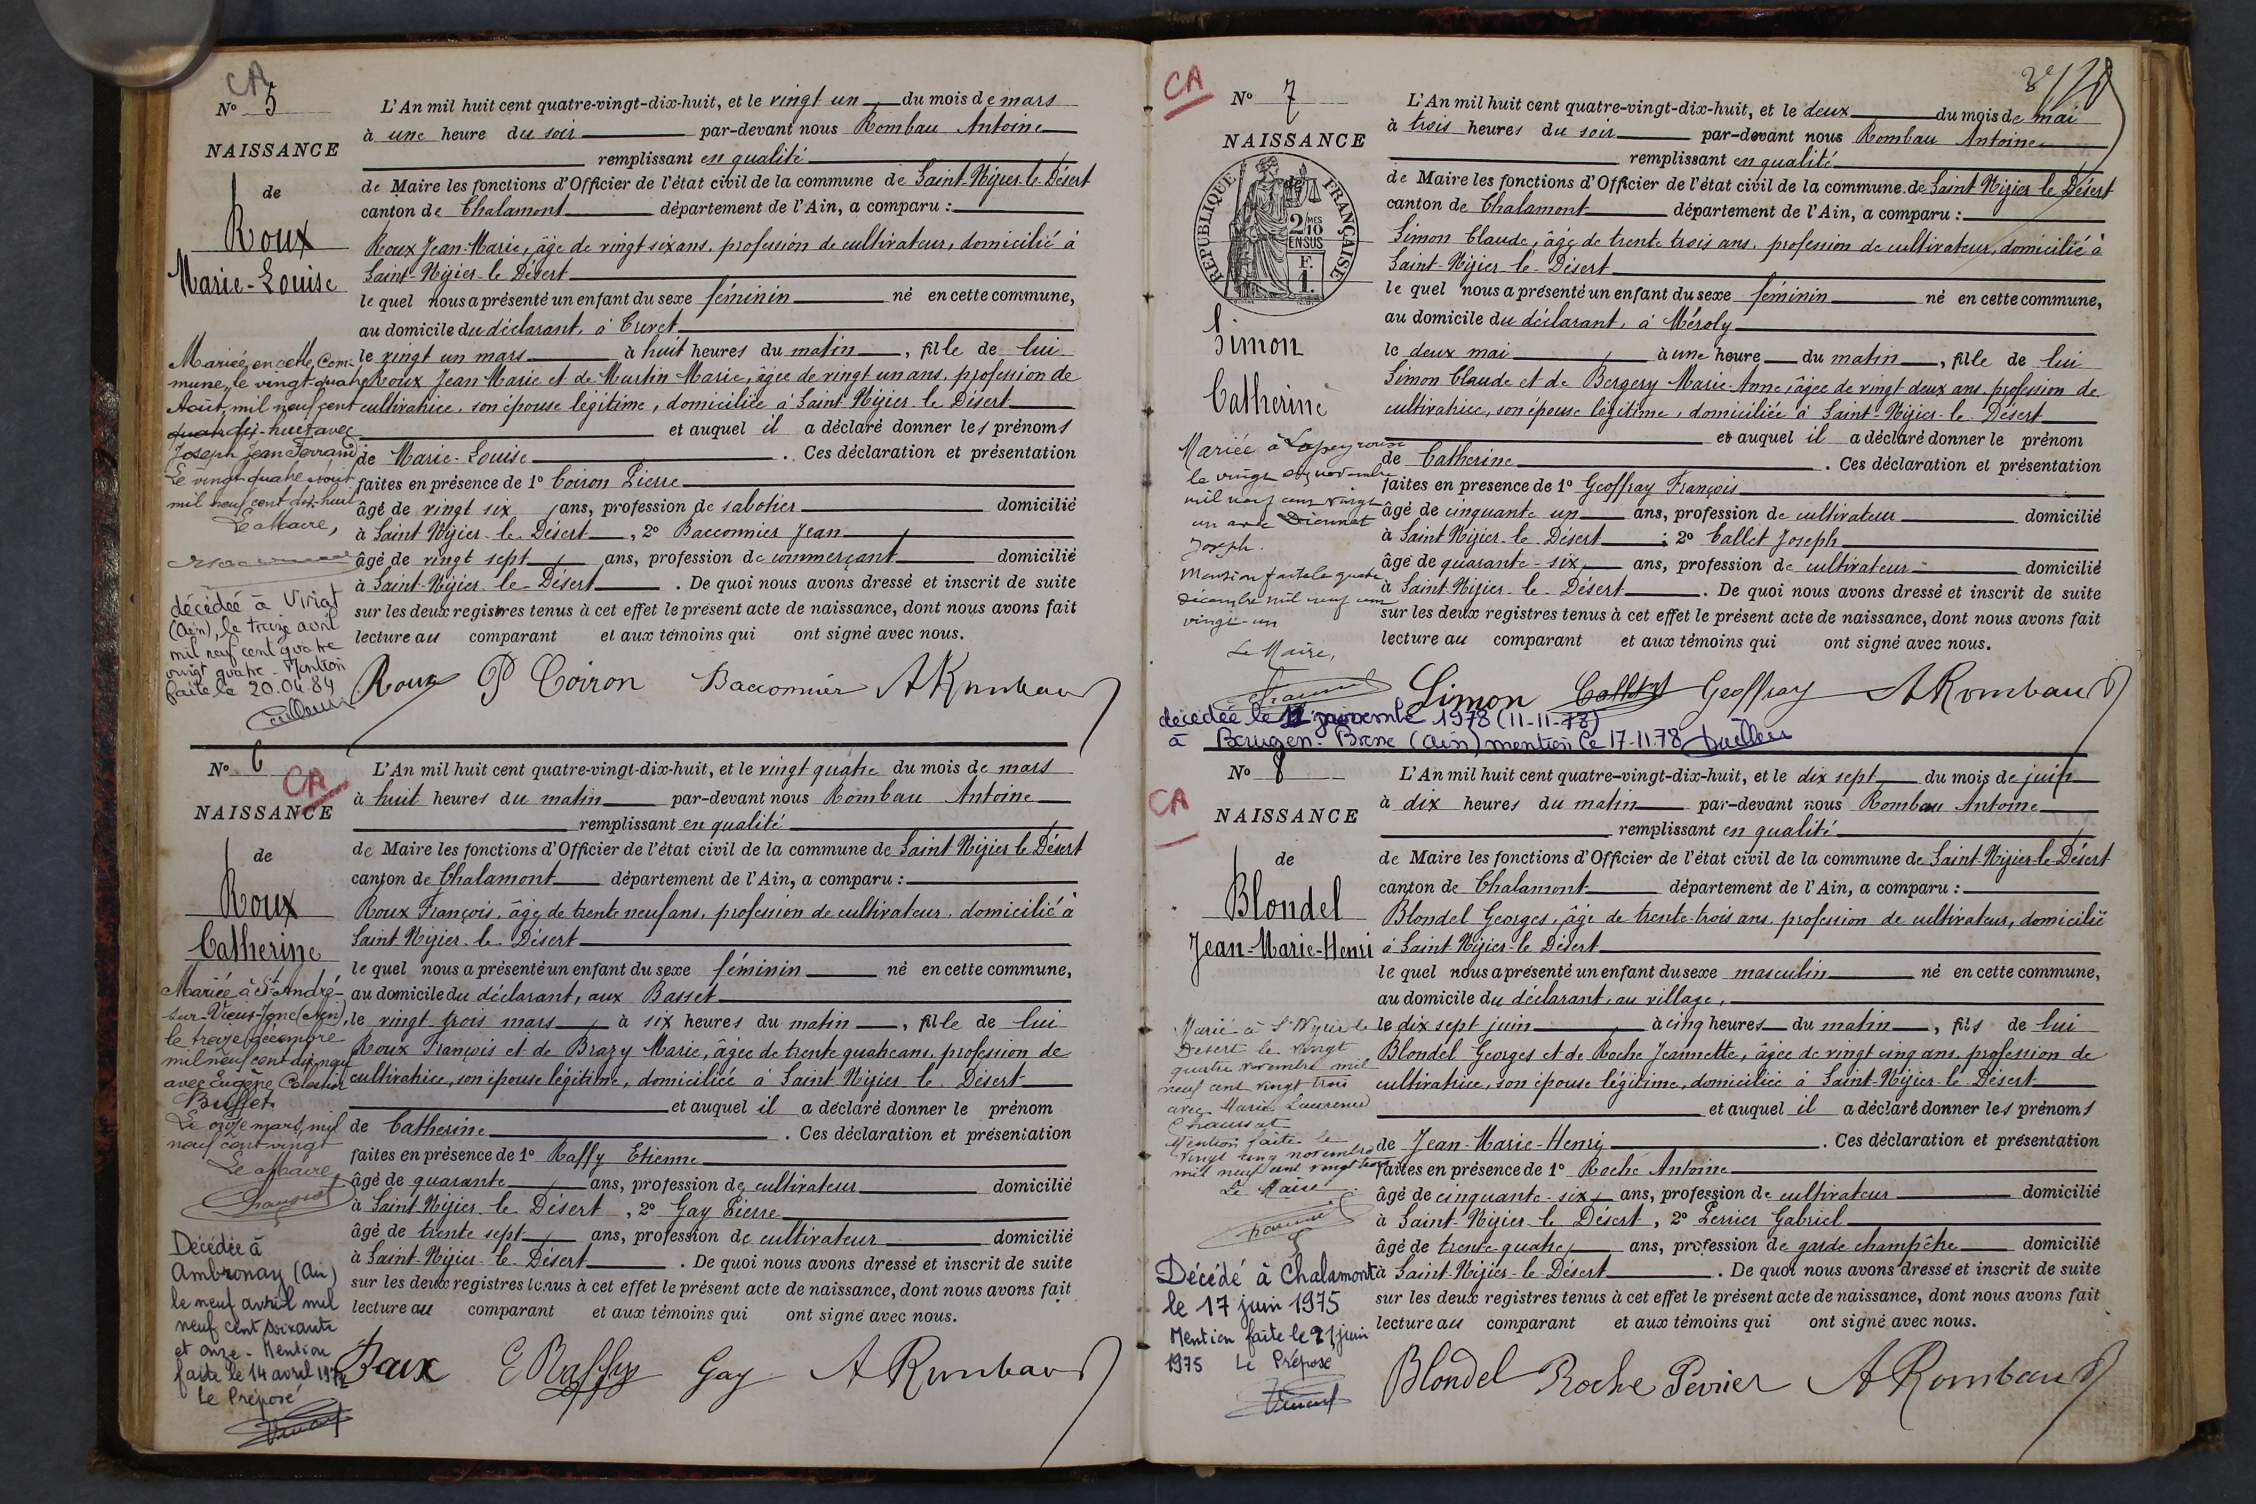 CA
N° 5
NAISSANCE
de
Roux
Marie-Louise
L'An mil huit cent quatre-vingt-dix-huit, et le vingt un du mois de mars
à une heure du soir par-devant nous Rombau Antoine
remplissant en qualité
de Maire les fonctions d'Officier de l'état civil de la commune de Saint-Nizier-le-Désert
canton de Chalamont département de l'Ain, a comparu :
Roux Jean-Marie, âgé de vingt six ans, profession de cultivateur, domicilié à
Saint-Nizier-le-Désert
le quel nous a présenté un enfant du sexe féminin né en cette commune,
au domicile du déclarant, à Cuvet
le vingt un mars à huit heures du matin, fille de lui
Roux Jean Marie et de Murtin Marie, âgée de vingt un ans, profession de
cultivatrice, son épouse légitime, domiciliée à Saint-Nizier-le-Désert
et auquel il a déclaré donner les prénoms
de Marie-Louise . Ces déclaration et présentation
faites en présence de 1° Coiron Pierre
âgé de vingt six ans, profession de sabotier domicilié
à Saint-Nizier-le-Désert, 2° Bacconnier Jean
âgé de vingt sept ans, profession de commerçant domicilié
à Saint-Nizier-le-Désert . De quoi nous avons dressé et inscrit de suite
sur les deux registres tenus à cet effet le présent acte de naissance, dont nous avons fait
lecture au comparant et aux témoins qui ont signé avec nous.
Roux P Coiron Bacconnier A Rombau
Mariée en cette Com-
mune, le vingt-quatre
Août, mil neuf cent
dix-huit avec
Joseph Jean Ferrand
Le vingt quatre août
mil neuf cent dix-huit
Le Maire,
décédée à Viriat
(Ain), le treize avril
mil neuf cent quatre
vingt quatre. Mention
faite le 20.04.84
N° 6
CA
NAISSANCE
de
Roux
Catherine
L'An mil huit cent quatre-vingt-dix-huit, et le vingt quatre du mois de mars
à huit heures du matin par-devant nous Rombau Antoine
remplissant en qualité
de Maire les fonctions d'Officier de l'état civil de la commune de Saint Nizier le Désert
canton de Chalamont département de l'Ain, a comparu :
Roux François, âgé de trente neuf ans, profession de cultivateur, domicilié à
Saint-Nizier-le-Désert
le quel nous a présenté un enfant du sexe féminin né en cette commune,
au domicile du déclarant, aux Basset
le vingt trois mars à six heures du matin, fille de lui
Roux François et de Brazy Marie, âgée de trente quatre ans, profession de
cultivatrice, son épouse légitime, domiciliée à Saint-Nizier-le-Désert
et auquel il a déclaré donner le prénom
de Catherine . Ces déclaration et présentation
faites en présence de 1° Raffy Etienne
âgé de quarante ans, profession de cultivateur domicilié
à Saint-Nizier-le-Désert, 2° Gay Pierre
âgé de trente sept ans, profession de cultivateur domicilié
à Saint-Nizier-le-Désert . De quoi nous avons dressé et inscrit de suite
sur les deux registres tenus à cet effet le présent acte de naissance, dont nous avons fait
lecture au comparant et aux témoins qui ont signé avec nous.
Roux E Raffy Gay A Rombau
Mariée à St André-
sur-Vieux-Jonc (Ain),
le treize décembre
mil neuf cent dix neuf
avec Eugène Célestin
Buffet.
Le onze mars, mil
neuf cent vingt
Le Maire,
Décédée à
Ambronay (Ain)
le neuf avril mil
neuf cent soixante
et onze. Mention
faite le 14 avril 1971
Le Préposé
CA
N° 7
NAISSANCE
de
RÉPUBLIQUE FRANÇAISE
2/10MES
EN SUS
F.
1.
Simon
Catherine
L'An mil huit cent quatre-vingt-dix-huit, et le deux du mois de mai
à trois heures du soir par-devant nous Rombau Antoine
remplissant en qualité
de Maire les fonctions d'Officier de l'état civil de la commune de Saint Nizier le Désert
canton de Chalamont département de l'Ain, a comparu :
Simon Claude, âgé de trente trois ans, profession de cultivateur, domicilié à
Saint-Nizier-le-Désert
le quel nous a présenté un enfant du sexe féminin né en cette commune,
au domicile du déclarant, à Méroly
le deux mai à une heure du matin, fille de lui
Simon Claude et de Bergery Marie-Anne, âgée de vingt deux ans, profession de
cultivatrice, son épouse légitime, domiciliée à Saint-Nizier-le-Désert
et auquel il a déclaré donner le prénom
de Catherine . Ces déclaration et présentation
faites en présence de 1° Geoffray François
âgé de cinquante un ans, profession de cultivateur domicilié
à Saint Nizier-le-Désert ; 2° Callet Joseph
âgé de quarante-six ans, profession de cultivateur domicilié
à Saint-Nizier-le-Désert . De quoi nous avons dressé et inscrit de suite
sur les deux registres tenus à cet effet le présent acte de naissance, dont nous avons fait
lecture au comparant et aux témoins qui ont signé avec nous.
Simon Callet Geoffray A Rombau
Mariée à Lapeyrouse
le vingt six novembre
mil neuf cent vingt
un avec Diennet
Joseph.
Mention faite le quatre
Décembre mil neuf cent
vingt-un
Le Maire,
décédée le 11 novembre 1978 (11-11-78)
à (Ain) mention le 17-11-78
N° 8
CA
NAISSANCE
de
Blondel
Jean-Marie-Henri
L'An mil huit cent quatre-vingt-dix-huit, et le dix sept du mois de juin
à dix heures du matin par-devant nous Rombau Antoine
remplissant en qualité
de Maire les fonctions d'Officier de l'état civil de la commune de Saint-Nizier-le-Désert
canton de Chalamont département de l'Ain, a comparu :
Blondel Georges, âgé de trente-trois ans, profession de cultivateur, domicilié
à Saint-Nizier-le Désert
le quel nous a présenté un enfant du sexe masculin né en cette commune,
au domicile du déclarant, au village,
le dix sept juin à cinq heures du matin, fils de lui
Blondel Georges et de Roche Jeannette, âgée de vingt cinq ans, profession de
cultivatrice, son épouse légitime, domiciliée à Saint-Nizier-le-Désert
et auquel il a déclaré donner les prénoms
de Jean-Marie-Henri . Ces déclaration et présentation
faites en présence de 1° Roche Antoine
âgé de cinquante-six ans, profession de cultivateur domicilié
à Saint-Nizier-le Désert, 2° Perrier Gabriel
âgé de trente-quatre ans, profession de garde champêtre domicilié
à Saint-Nizier-le-Désert . De quoi nous avons dressé et inscrit de suite
sur les deux registres tenus à cet effet le présent acte de naissance, dont nous avons fait
lecture au comparant et aux témoins qui ont signé avec nous.
Blondel Roche Perrier A Rombau
Marié à St Nizier le
Désert le vingt
quatre novembre mil
neuf cent vingt trois
avec Marie Laurence
Chaussat
Mention faite le
vingt cinq novembre
mil neuf cent vingt trois
Le Maire
Décédé à Chalamont
le 17 juin 1975
Mention faite le 21 juin
1975 Le Préposé